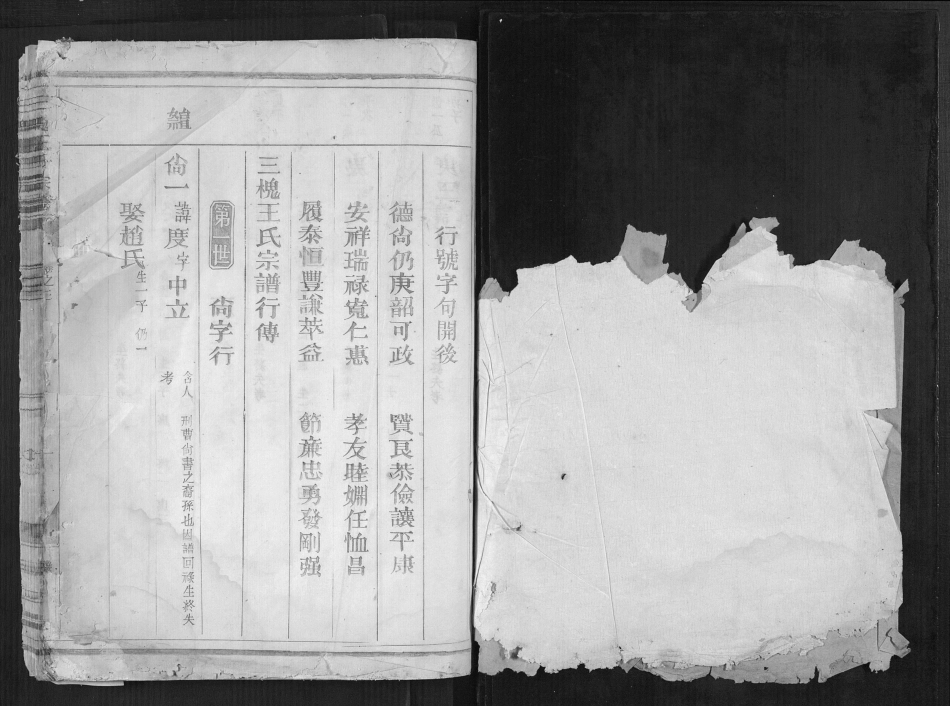 行號字句開後
德尙仍庚韶可政 賢良恭儉讓平康
安祥瑞祿寬仁惠 孝友睦婣任恤昌
履泰恒豐謙萃益 節廉忠勇發剛强
三槐王氏宗譜行傳
第一世 尙字行
尙一 諱度 字中立 舍人 刑曹尙書之裔孫也因譜回祿生終失
考
娶趙氏 生一子 仍一